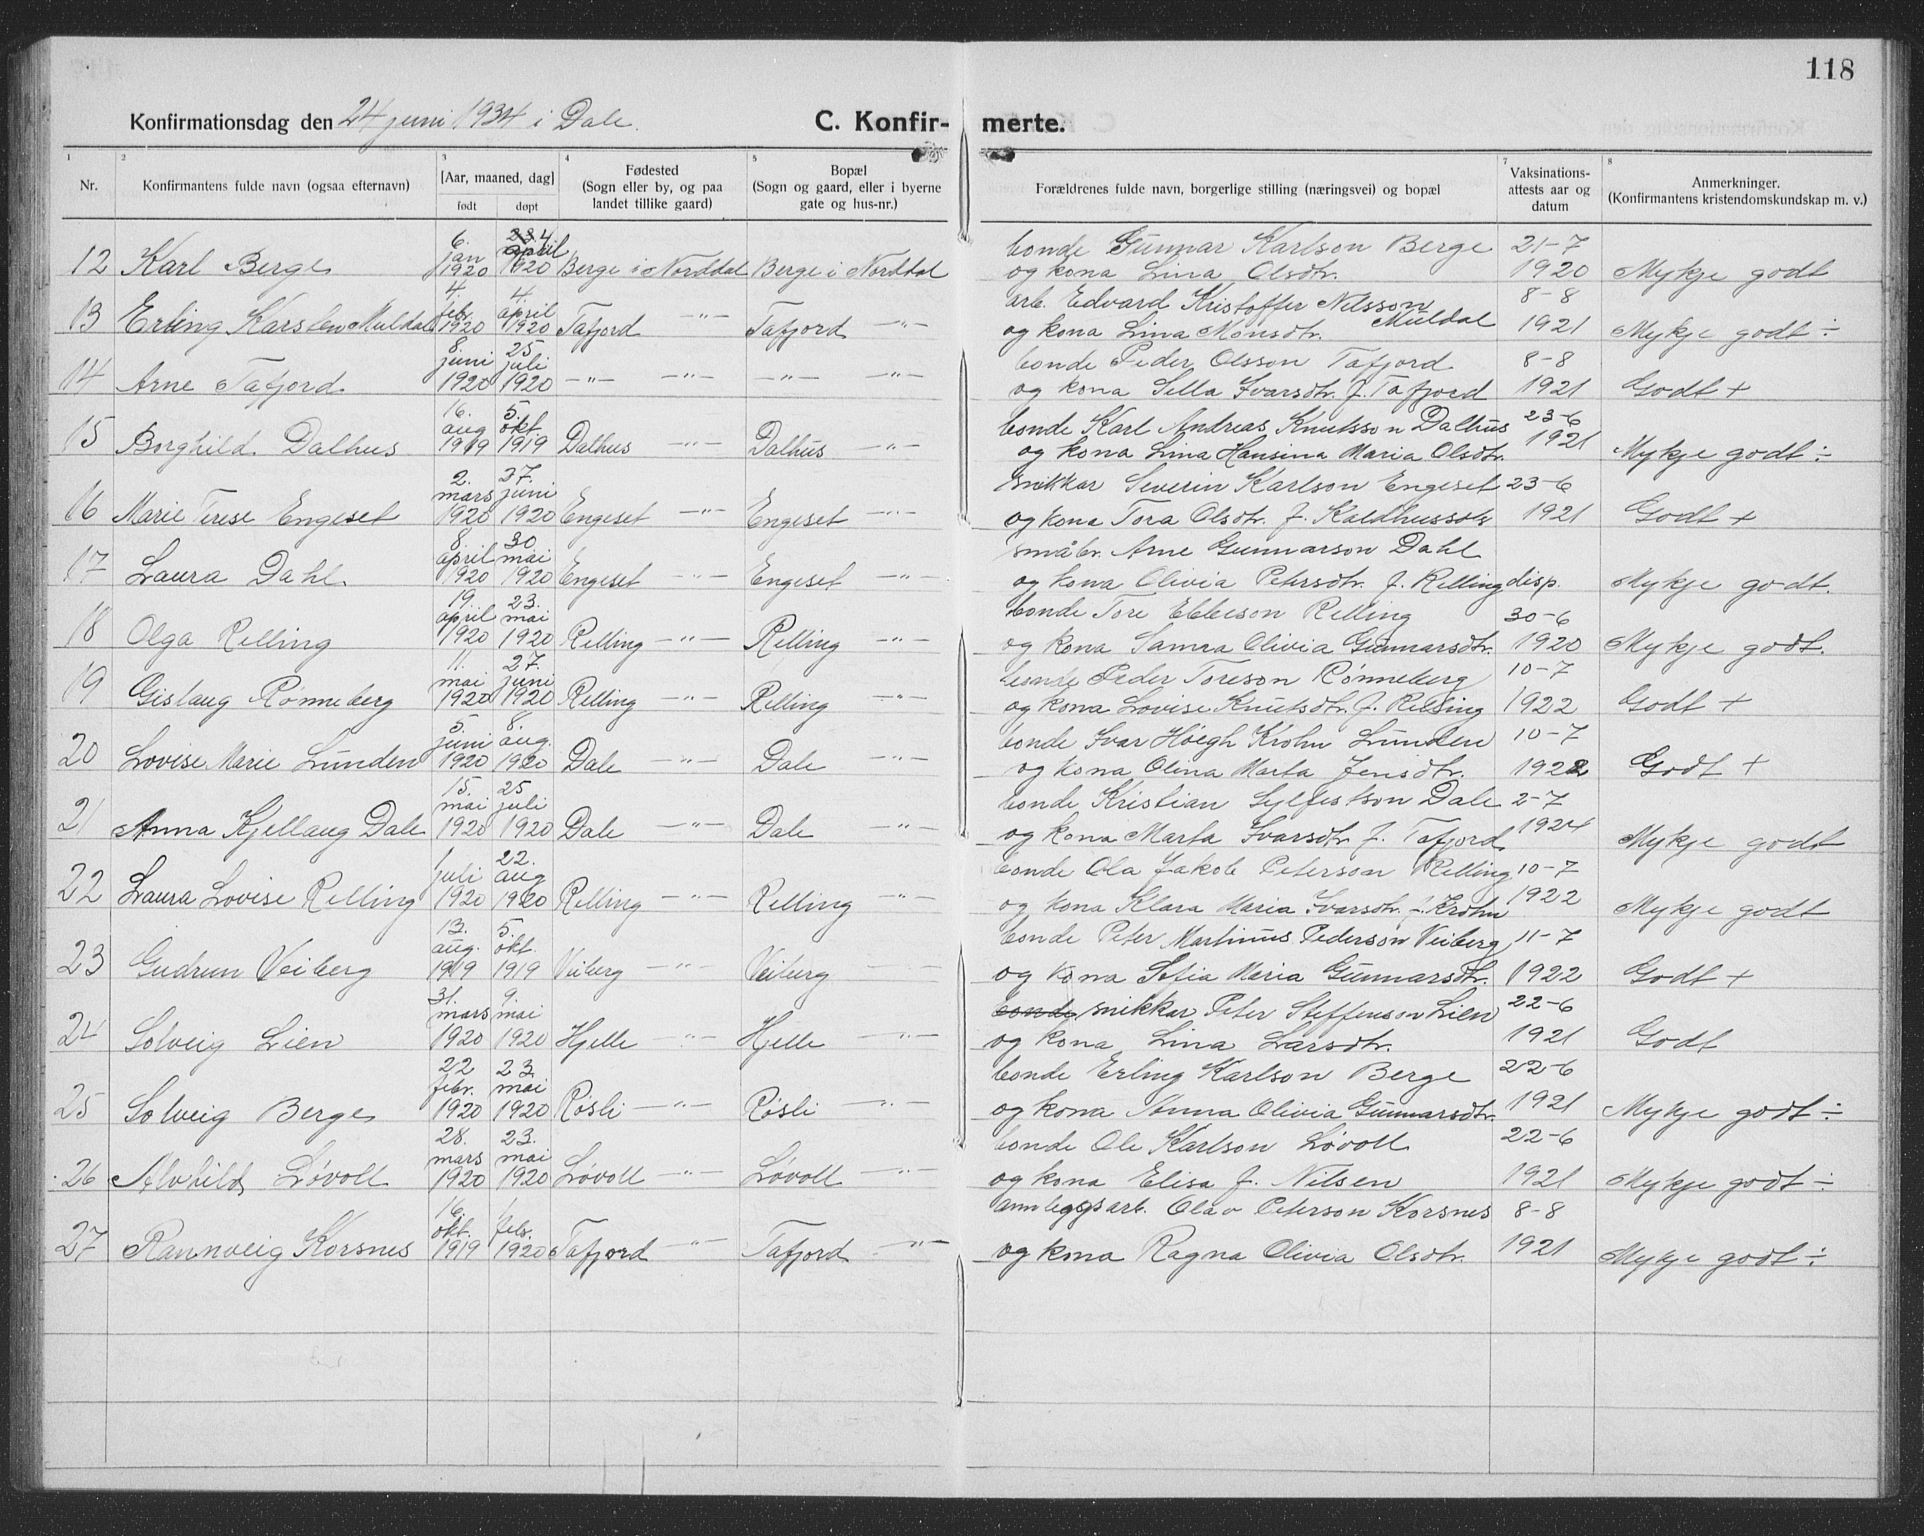 118
Konfirmationsdag den 24 juni 1934 i Dale.
C. Konfir- merte.
1 2 3 4 5 7 8
Nr. Konfirmantens fulde navn (ogsaa efternavn) [Aar, maaned, dag] født døpt Fødested (Sogn eller by, og paa landet tillike gaard) Bopæl (Sogn og gaard, eller i byerne gate og hus-nr.) Forældrenes fulde navn, borgerlige stilling (næringsvei) og bopæl Vaksinationsattests aar og datum Anmerkninger. (Konfirmantens kristendomskundskap m. v.)
12 Karl Berge 6. jan 1920 4 april 1920 Berge i Norddal Berge i Norddal bonde Gunnar Karlson Berge og kona Lina Olsdtr. 21-7 1920 Mykje godt
13 Erling Karsten Muldal 4. febr. 1920 4. april 1920 Tafjord -"- Tafjord -"- arb. Edvard Kristoffer Nilsson Muldal og kona Lina Monsdtr. 8-8 1921 Mykje godt ÷
14 Arne Tafjord 8. juni 1920 25 juli 1920 -"- -"- -"- -"- bonde Peder Olsson Tafjord og kona Sella Ivarsdtr. f. Tafjord 8-8 1921 Godt +
15 Borghild Dalhus 16. aug 1919 5. okt 1919 Dalhus -"- Dalhus -"- bonde Karl Andreas Knutsson Dalhus og kona Lina Hansina Maria Olsdtr. 23-6 1921 Mykje godt ÷
16 Marie Terese Engeset 2. mars 1920 27. juni 1920 Engeset -"- Engeset -"- snikkar Severin Karlson Engeset og kona Tora Olsdtr. f. Kaldhussæter 23-6 1921 Godt +
17 Laura Dahl 8. april 1920 30 mai 1920 Engeset -"- Engeset -"- småbr. Arne Gunnarson Dahl og kona Olivia Petersdtr. f. Relling disp. Mykje godt.
18 Olga Relling 19. april 1920 23. mai 1920 Relling -"- Relling bonde Tore Ebbeson Relling og kona Samra Olivia Gunnarsdtr. 30-6 1920 Mykje godt.
19 Gislaug Rønneberg 11. mai 1920 27. juni 1920 Relling -"- Relling -"- bonde Peder Toreson Rønneberg og kona Lovise Knutsdtr. f. Relling 10-7 1922 Godt +
20 Lovise Marie Lunden 5. juni 1920 8. aug. 1920 Dale -"- Dale -"- bonde Ivar Høegh Krohn Lunden og kona Olina Marta Jensdtr. 10-7 1922 Godt +
21 Anna Kjellaug Dale 15. mai 1920 25 juli 1920 Dale -"- Dale -"- bonde Kristian Sylfestson Dale og kona Marta Ivarsdtr. f. Tafjord 2-7 1924 Mykje godt
22 Laura Lovise Relling 1 juli 1920 22. aug 1920 Relling -"- Relling -"- bonde Ola Jakob Peterson Relling og kona Klara Maria Ivarsdtr. f. Krohn 10-7 1922 Mykje godt
23 Gudrun Veiberg 13. aug. 1919 5. okt. 1919 Veiberg -"- Veiberg -"- bonde Peter Martinus Pederson Veiberg og kona Sofia Maria Gunnarsdtr. 11-7 1922 Godt +
24 Solveig Lien 31. mars 1920 9. mai 1920 Hjelle -"- Hjelle -"- bonde snikkar Peter Steffenson Lien og kona Lina Larsdtr. 22-6 1921 Godt
25 Solveig Berge 22 febr. 1920 23. mai 1920 Røsli -"- Røsli -"- bonde Erling Karlson Berge og kona Anna Olivia Gunnarsdtr. 22-6 1921 Mykje godt ÷
26 Alvhild Løvoll 28. mars 1920 23. mai 1920 Løvoll -"- Løvoll -"- bonde Ole Karlson Løvoll og kona Elisa f. Nilsen 22-6 1921 Mykje godt ÷
27 Rannveig Korsnes 16. okt. 1919 1 febr. 1920 Tafjord -"- Tafjord -"- annleggsarb. Olav Peterson Korsnes og kona Ragna Olivia Olsdtr. 8-8 1921 Mykje godt ÷